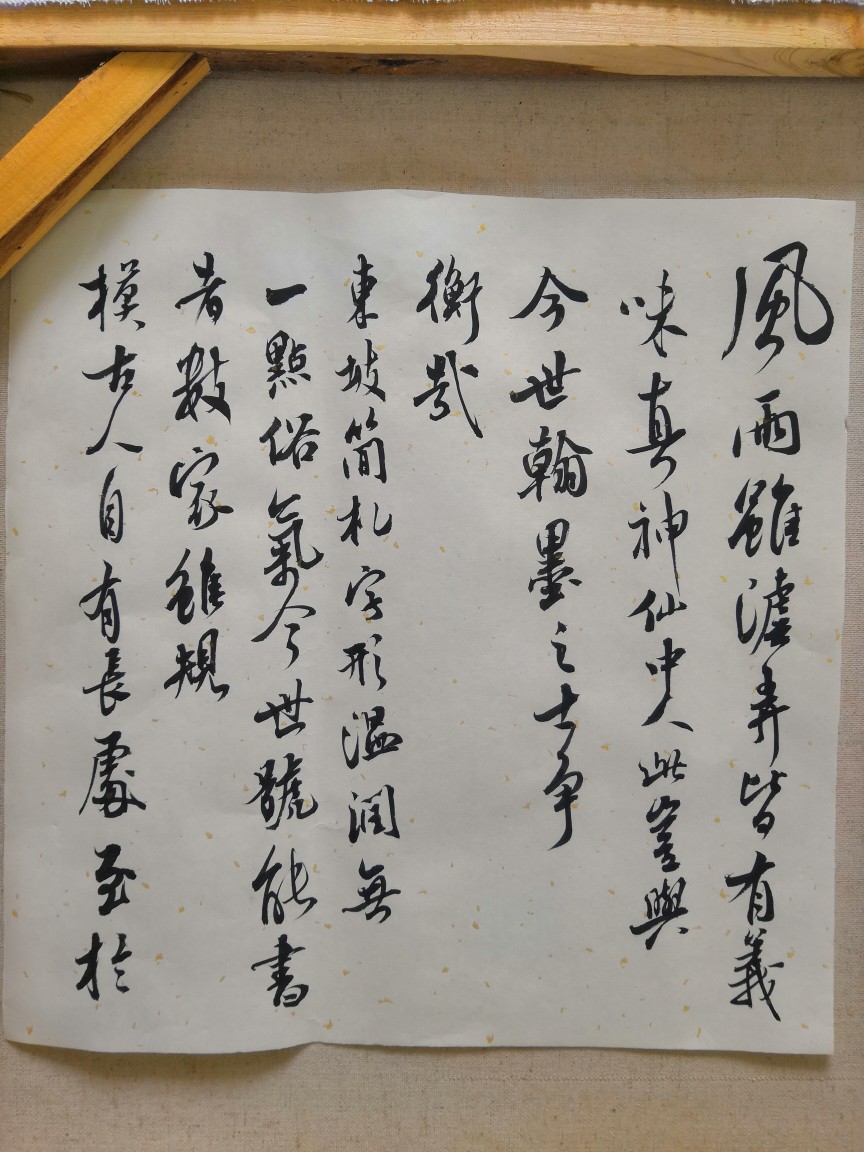 風雨雖謔弄皆有義
味真神仙中人此豈與
今世翰墨之士争
衡哉
東坡簡札字形温潤無
一點俗氣今世號能書
者數家雖規
模古人自有長處至於